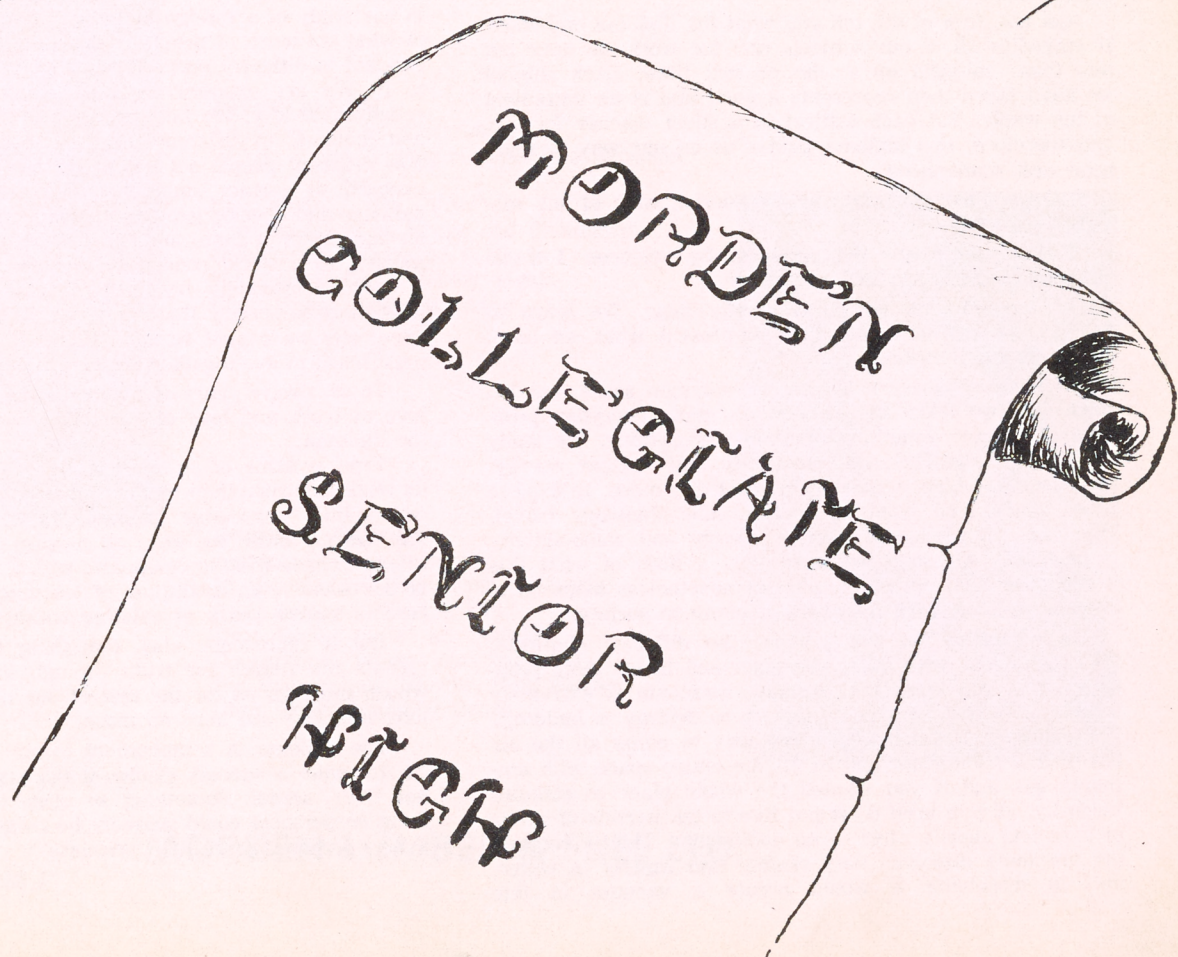 MORDEN
COLLEGIATE
SENIOR
HIGH